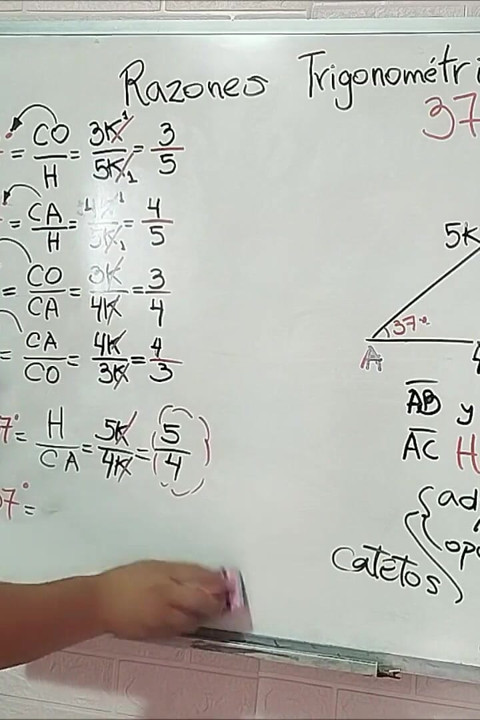 Razones Trigonométri
37
= CO/H = 3K/5K = 3/5
= CA/H = 4K/5K = 4/5
= CO/CA = 3K/4K = 3/4
= CA/CO = 4K/3K = 4/3
7° = H/CA = 5K/4K = 5/4
37° =
5K
37°
A
AB y
AC H
ad
opo
Catetos